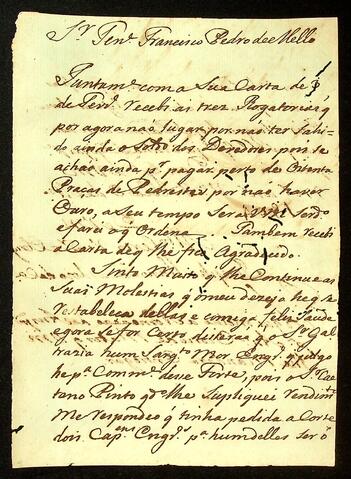 Sr Tente Francisco Pedro de Mello
Juntamte com a Sua Carta de
de Fevro recebi as tres Rogatorias q
por agora nao lugar por nao ter Sahi-
do ainda o Soldo dos Devedores pois se
achão ainda pr pagar perto de Oitenta
Praças de Pedestes por não haver
Ouro, a Seu tempo Sera Vmce Servdo
e farei o q Ordena Tambem recebi
a Carta de q lhe fico Agradecido.
Sinto Muito q lhe Continue as
Suas Molestias q o meu dezejo he q se
restabeleça dellas e comessa feliz Saude
egora se for Certo dizerse q o Sr Gal
trazia hum Sargto Mor Engro q julgo
he pa Commde desse Forte, pois o Sr Cae
tano Pinto qdo lhe Supliquei rendimto
me respondeo q tinha pedido a Corte
dois Capens Engros pa hum delles ser o